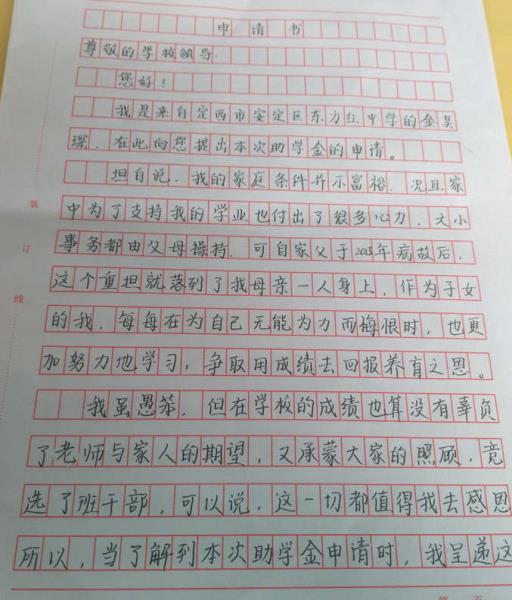 申请书
尊敬的学校领导:
您好!
我是来自定西市安定区东方红中学的金昊
琛,在此向您提出本次助学金的申请。
坦白说,我的家庭条件并不富裕,况且家
中为了支持我的学业也付出了很多心力,大小
事务都由父母操持,可自家父于2015年病故后,
这个重担就落到了我母亲一人身上,作为子女
的我,每每在为自己无能为力而悔恨时,也更
加努力地学习,争取用成绩去回报养育之恩。
我虽愚笨,但在学校的成绩也算没有辜负
了老师与家人的期望,又承蒙大家的照顾,竞
选了班干部,可以说,这一切都值得我去感恩
所以,当了解到本次助学金申请时,我呈递这
装
订
线